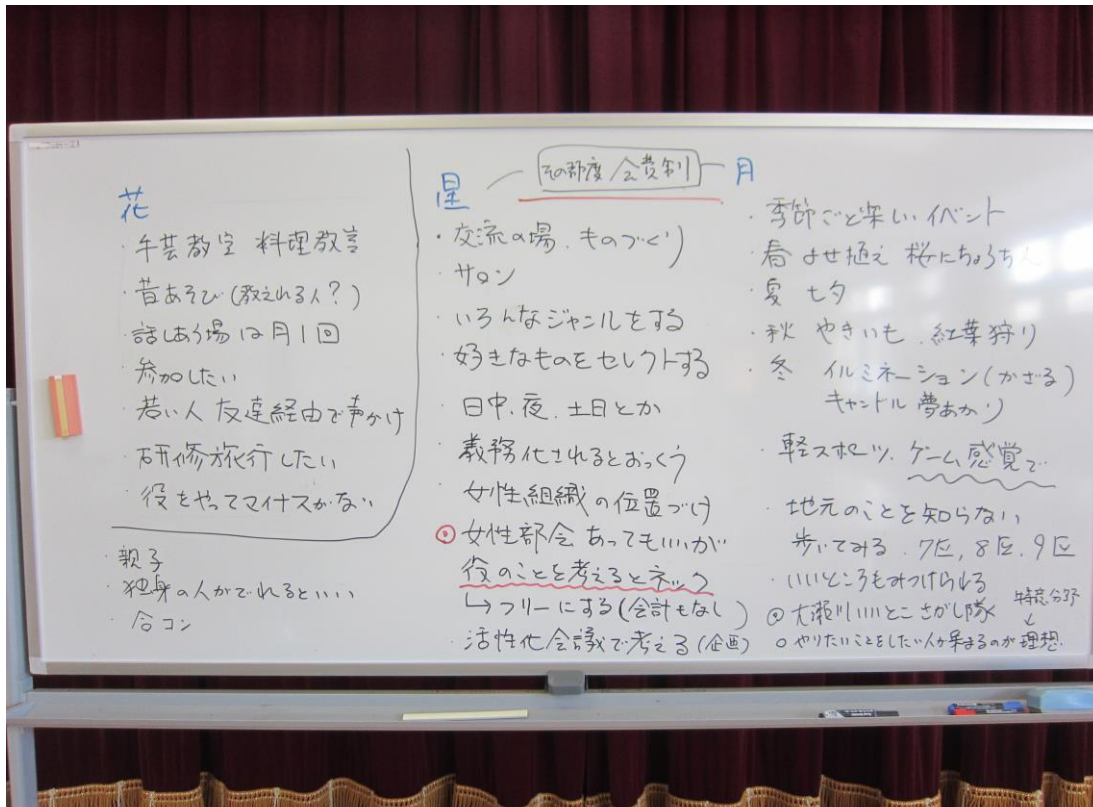 花
・手芸教室 料理教室
・昔あそび(教えれる人?)
・話しあう場は月1回
・参加したい
・若い人 友達経由で声かけ
・研修旅行したい
・役をやってマイナスがない
・親子
・独身の人がでれるといい
・合コン
その都度/会費制
星
・交流の場、ものづくり
・サロン
・いろんなジャンルをする
・好きなものをセレクトする
・日中、夜、土日とか
・義務化されるとおっくう
・女性組織の位置づけ
◎女性部会 あってもいいが
役のことを考えるとネック
↳フリーにする(会計もなし)
・活性化会議で考える(企画)
月
・季節ごと楽しいイベント
・春 よせ植え 桜にちょうちん
・夏 七夕
・秋 やきいも、紅葉狩り
・冬 イルミネーション(かざる)
キャンドル 夢あかり
・軽スポーツ、ゲーム感覚で
・地元のことを知らない
歩いてみる、7区,8区,9区
・いいところもみつけられる
◎大瀬川いいとこさがし隊
得意分野
↓
○やりたいことをしたい人が集まるのが理想.